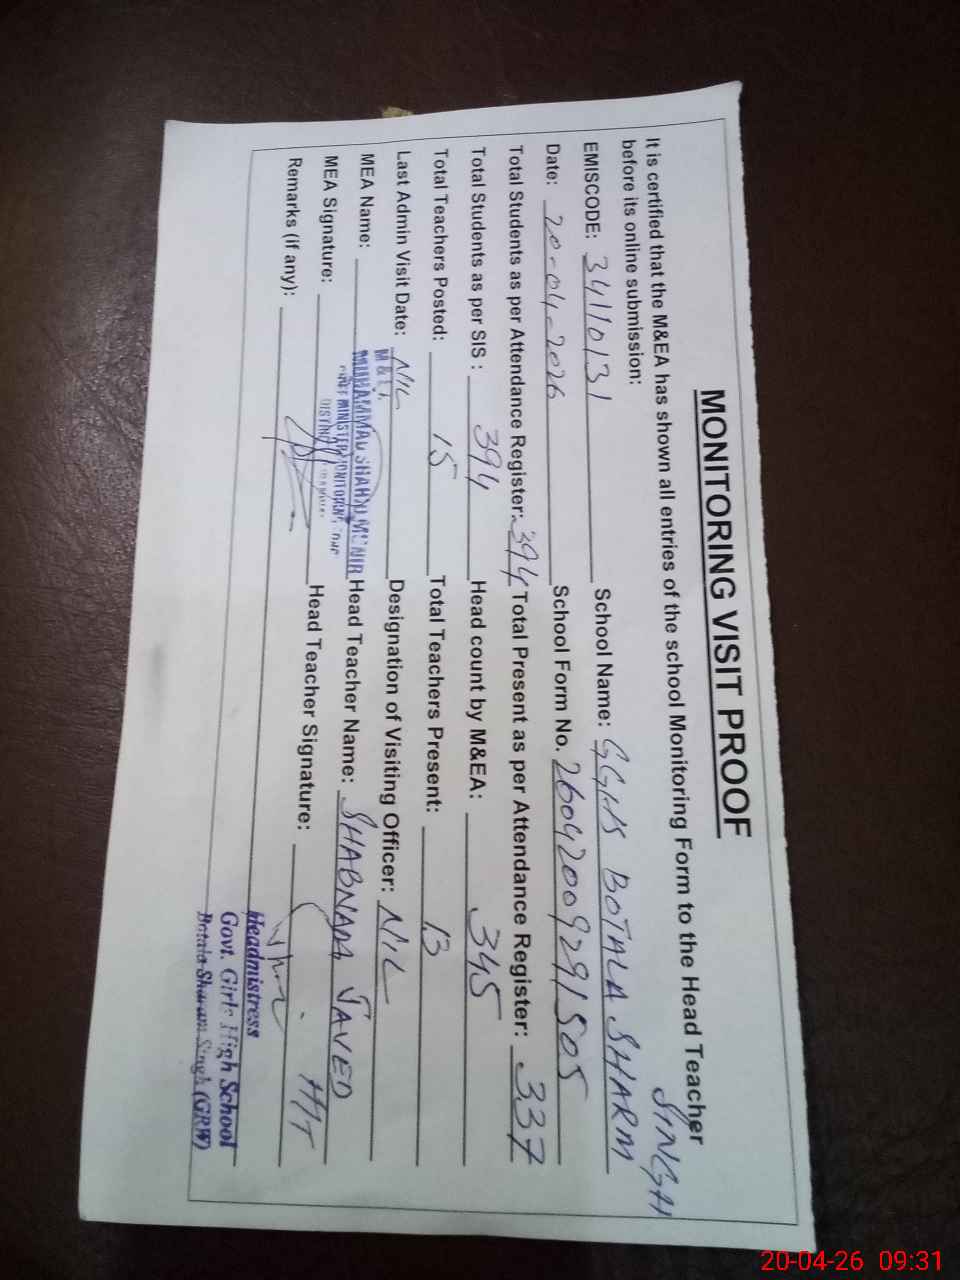 MONITORING VISIT PROOF
It is certified that the M&EA has shown all entries of the school Monitoring Form to the Head Teacher
before its online submission:
EMISCODE: 34110131 School Name: GGHS BOTALA SHARM SINGH
Date: 20-04-2026 School Form No. 26042009291505
Total Students as per Attendance Register: 394 Total Present as per Attendance Register: 337
Total Students as per SIS : 394 Head count by M&EA: 345
Total Teachers Posted: 15 Total Teachers Present: 13
Last Admin Visit Date: NIL Designation of Visiting Officer: NIL
M & E A
MEA Name: MUHAMMAD SHAHID MUNIR Head Teacher Name: SHABNAM JAVED
MINISTER MONITORING
MEA Signature: Head Teacher Signature: H/T
Remarks (if any):
Headmistress
Govt. Girls High School
Botala Sharam Singh (GRW)
20-04-26 09:31